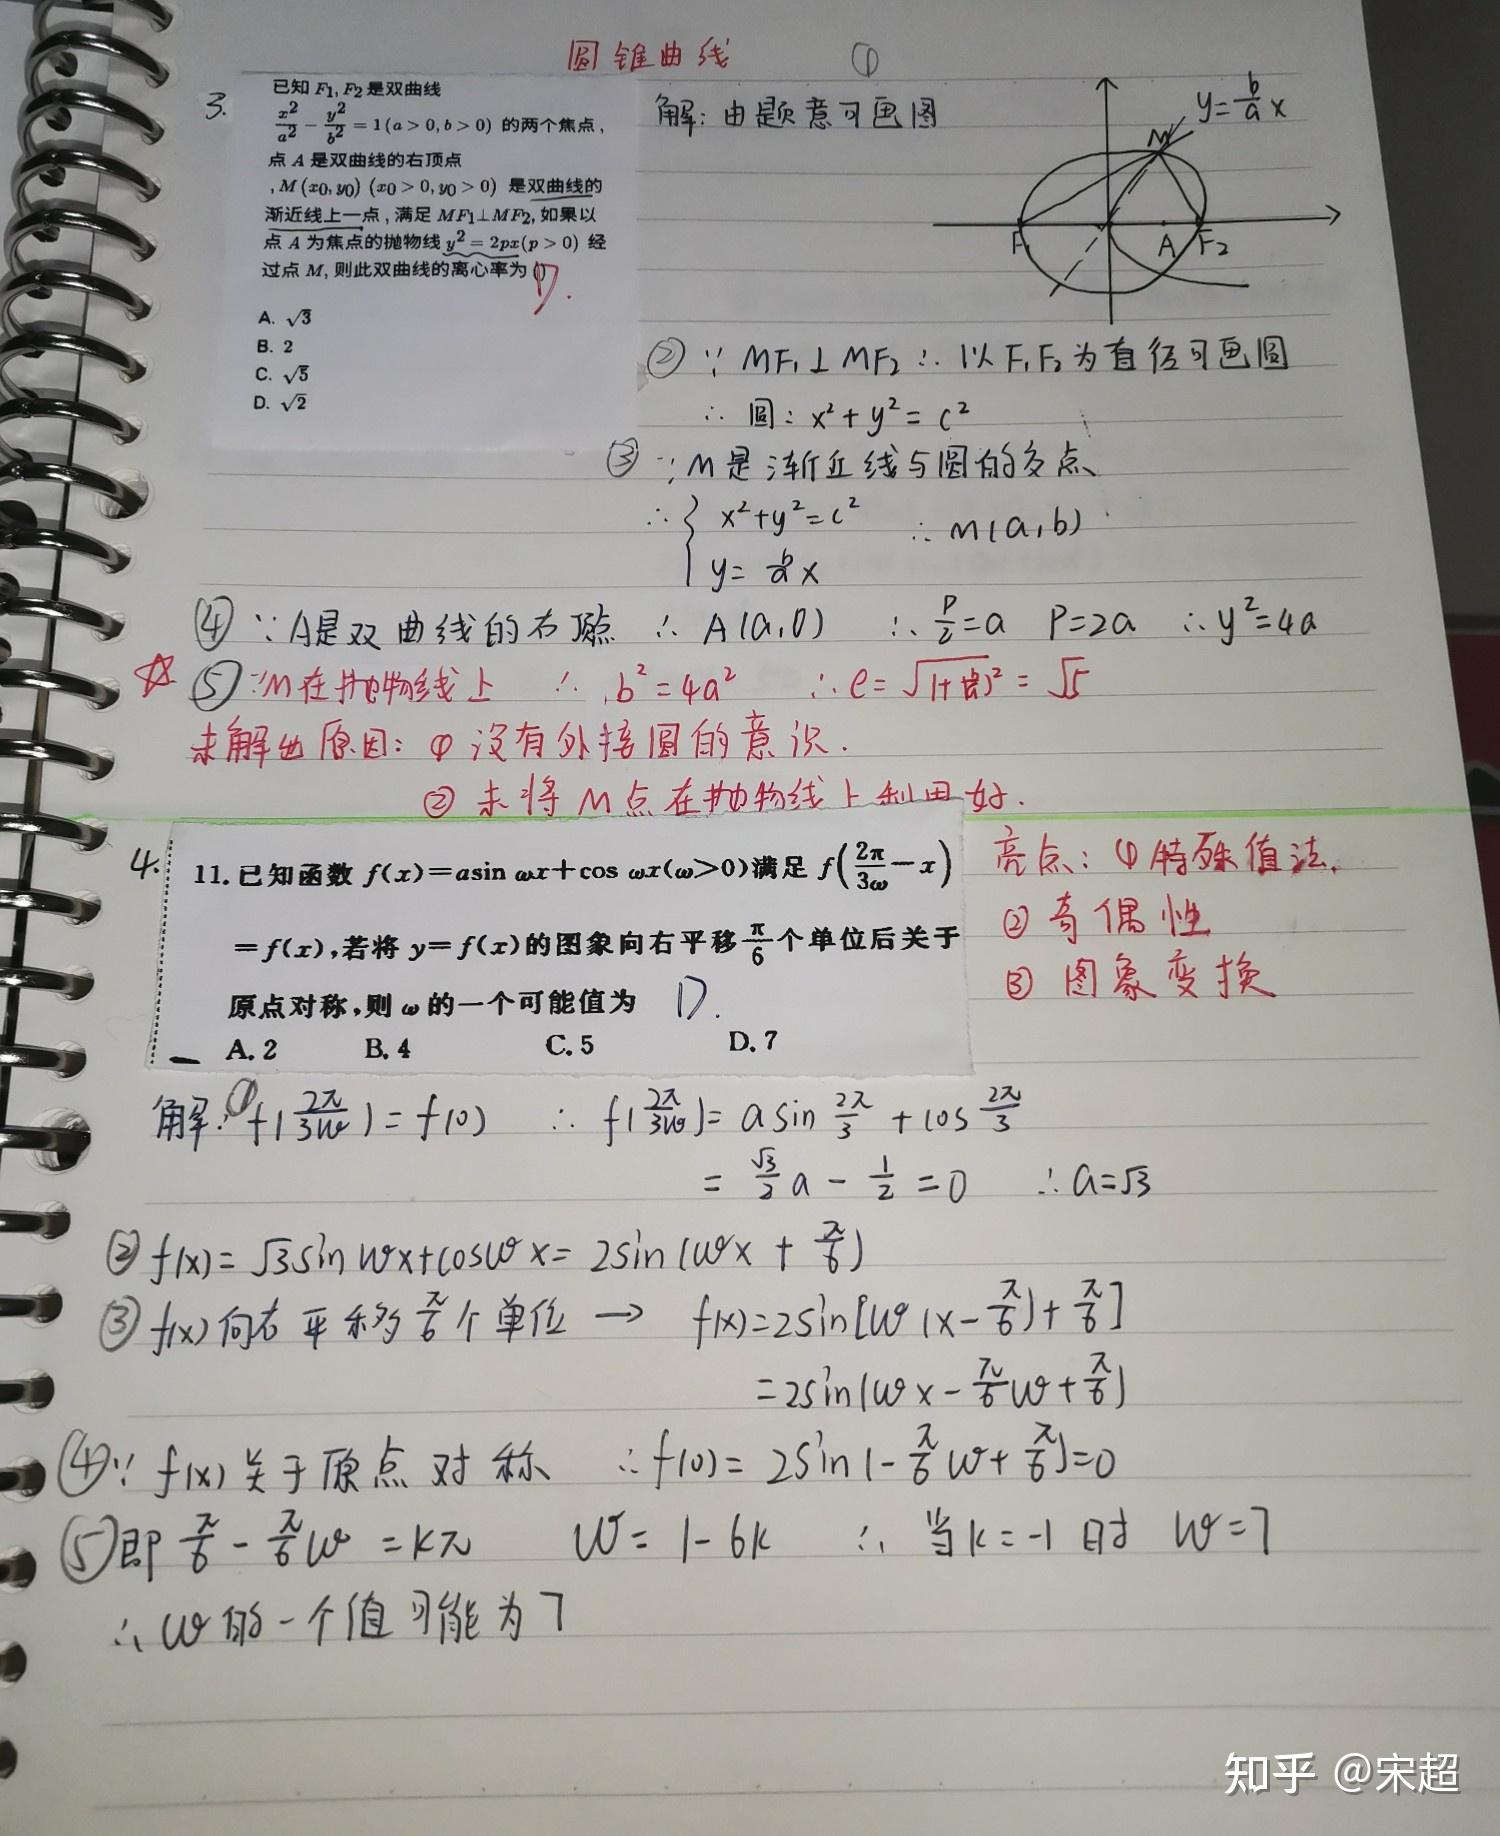 圆锥曲线 ①
3.
已知 F₁, F₂ 是双曲线
x²/a² − y²/b² = 1(a > 0, b > 0) 的两个焦点,
点 A 是双曲线的右顶点
, M (x₀, y₀) (x₀ > 0, y₀ > 0) 是双曲线的
渐近线上一点, 满足 MF₁⊥MF₂, 如果以
点 A 为焦点的抛物线 y² = 2px(p > 0) 经
过点 M, 则此双曲线的离心率为 ()
A. √3
B. 2
C. √5
D. √2
解: 由题意可画图
y = b/a x
M
F₁ A F₂
② ∵ MF₁⊥MF₂ ∴ 以F₁F₂为直径可画圆
∴ 圆: x²+y² = c²
③ ∵ M是渐近线与圆的交点
∴ { x²+y²=c² ∴ M(a,b)
y = b/a x
④ ∵ A是双曲线的右顶点 ∴ A(a,0) ∴ p/2=a P=2a ∴ y²=4a
☆ ⑤ ∵M在抛物线上 ∴ b²=4a² ∴ e=√(1+(b/a)²) = √5
未解出原因: ① 没有外接圆的意识.
② 未将M点在抛物线上利用好.
4.
11. 已知函数 f(x)=asin ωx+cos ωx(ω>0)满足 f(2π/3ω − x)
=f(x),若将 y=f(x)的图象向右平移 π/6 个单位后关于
原点对称,则 ω 的一个可能值为 D.
A. 2 B. 4 C. 5 D. 7
亮点: ① 特殊值法.
② 奇偶性
③ 图象变换
解: ① f(2π/3w) = f(0) ∴ f(2π/3w) = a sin 2π/3 + cos 2π/3
= √3/2 a − 1/2 = 0 ∴ a=√3
② f(x) = √3sin wx+cosw x = 2sin(wx + π/6)
③ f(x)向右平移π/6个单位 → f(x)=2sin[w(x−π/6)+π/6]
=2sin(wx−π/6w+π/6)
④ ∵ f(x)关于原点对称 ∴ f(0) = 2sin(−π/6w+π/6)=0
⑤ 即 π/6 − π/6w = kπ w = 1−6k ∴ 当k=−1时 w=7
∴ w的一个值可能为7
知乎 @宋超